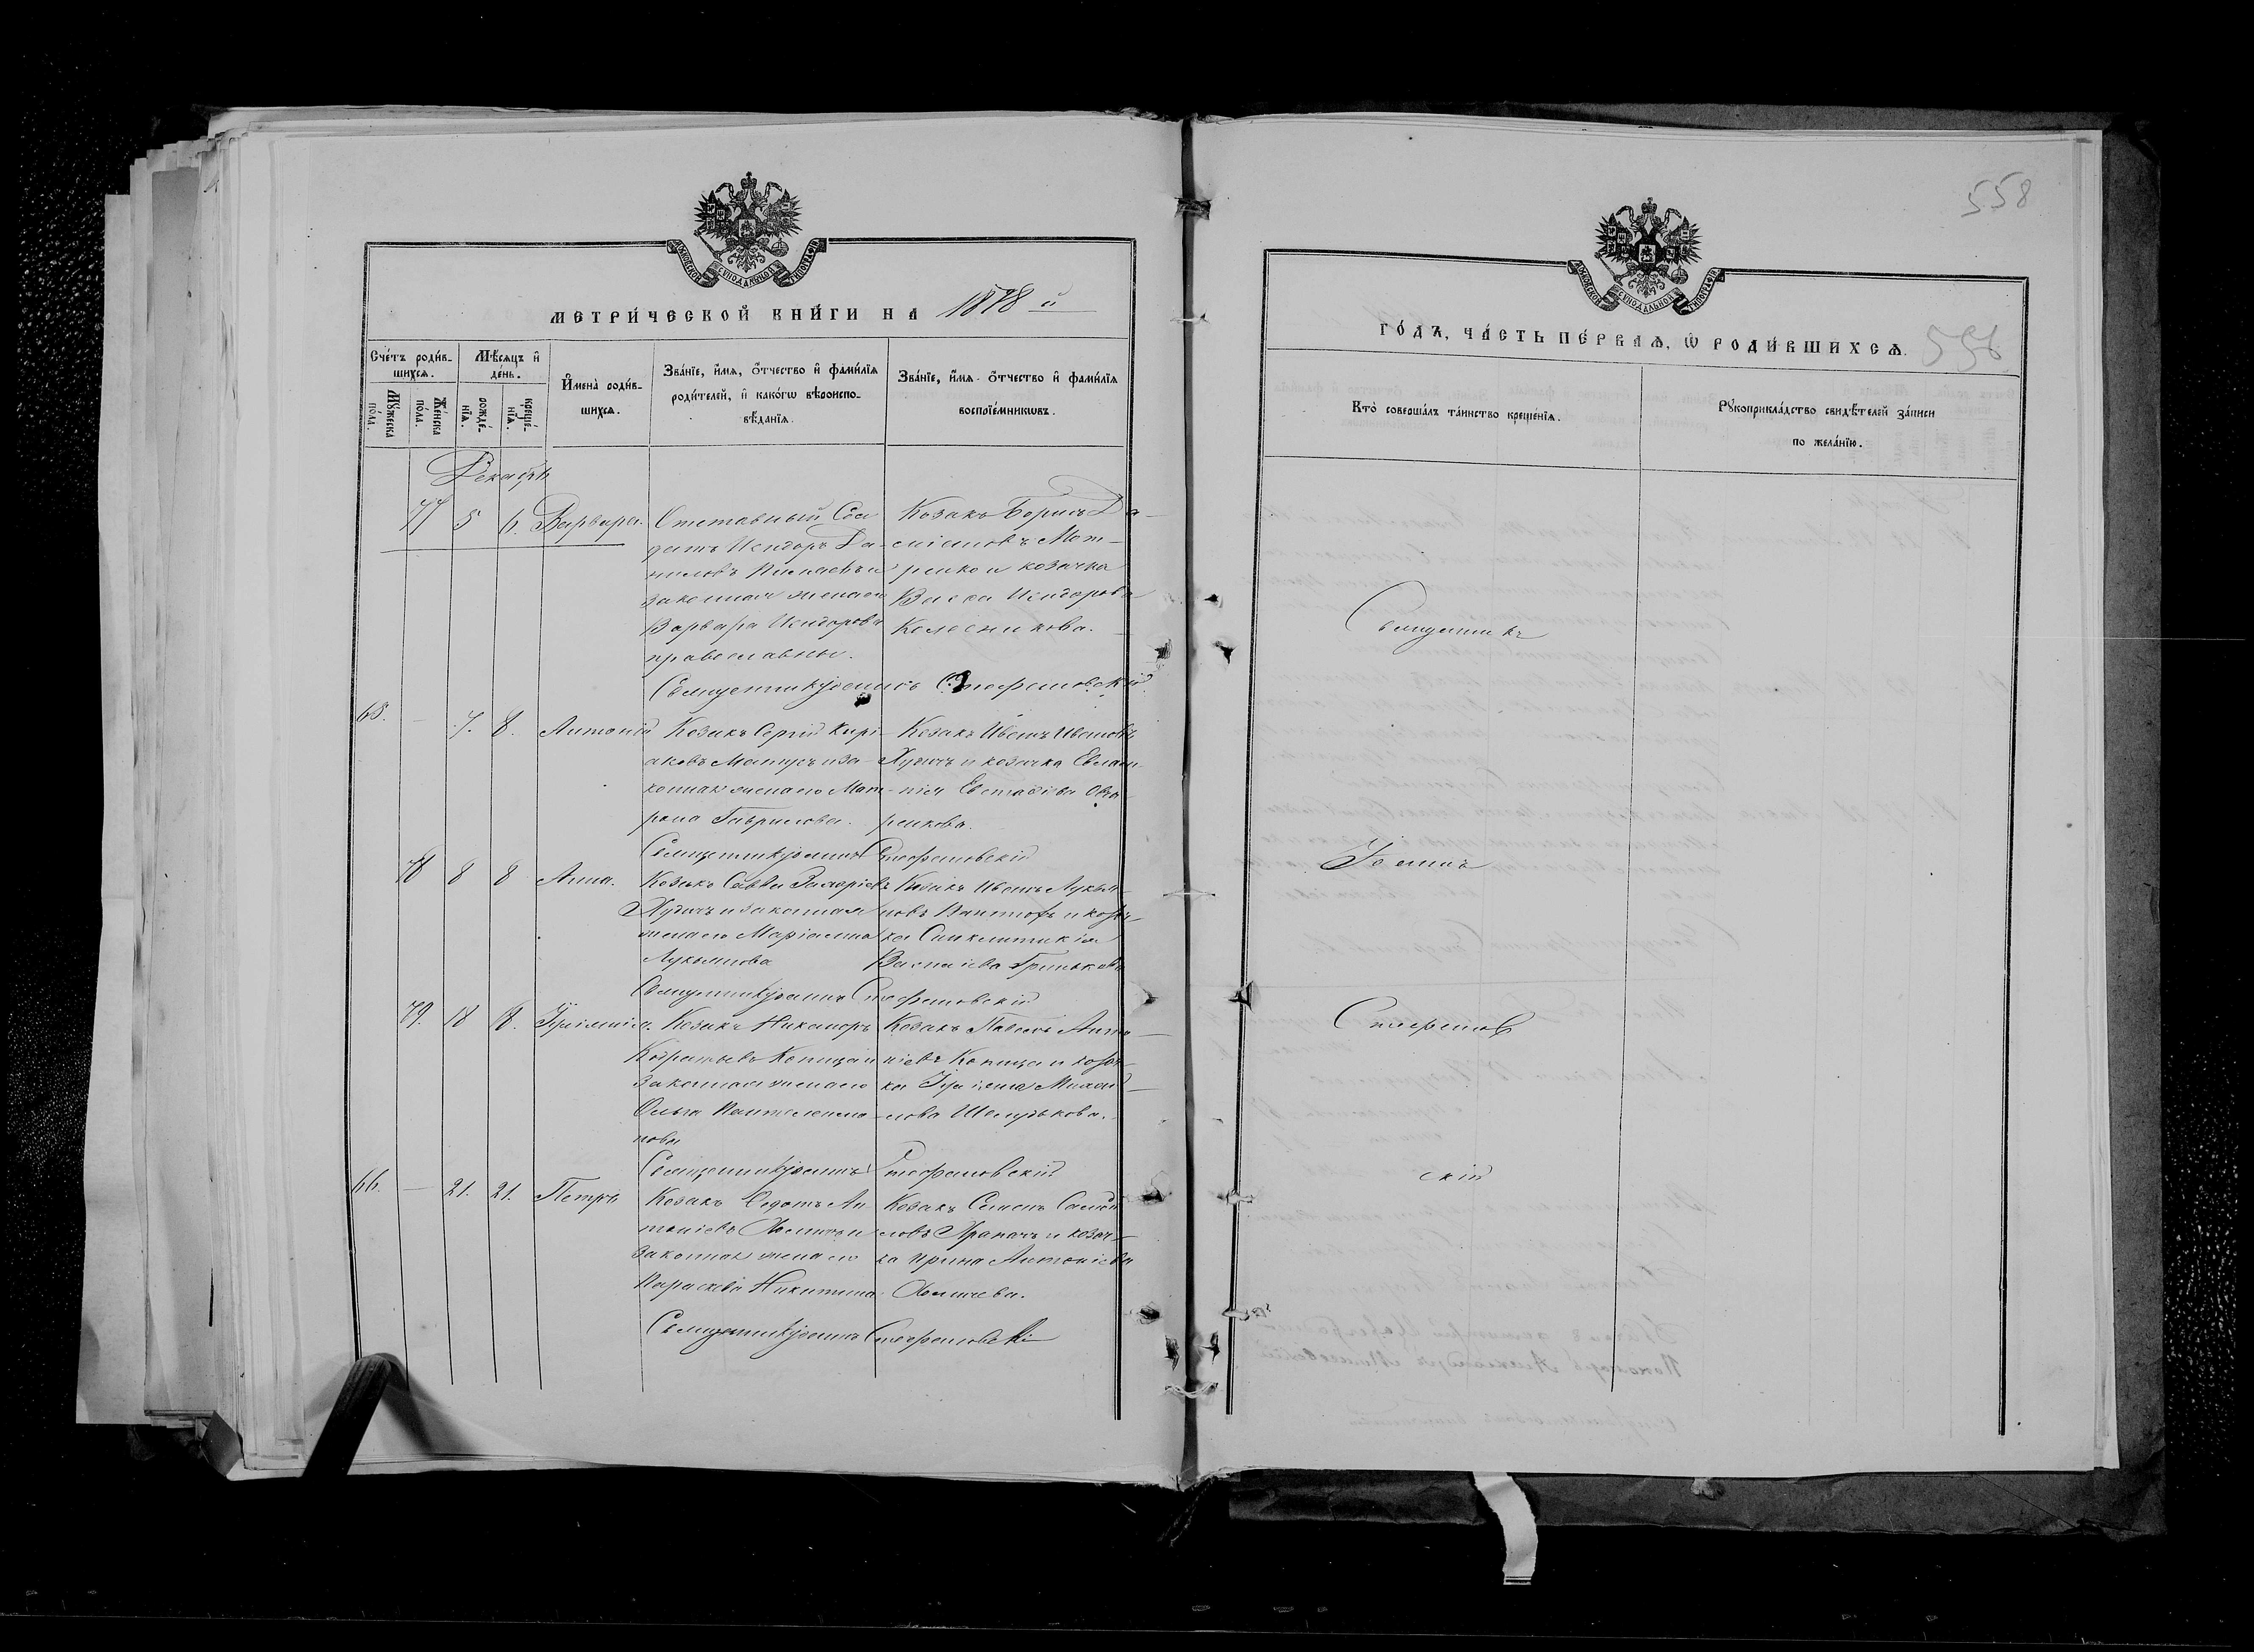 558
МОСКОВСКОЙ СѴНОДАЛЬНОЙ ТИПОГРАФІИ
МЕТРИ́ЧЕСКОЙ КНИ́ГИ НА 1878 й
Сче́тъ роди́в-
шихсѧ.
Мꙋ́жеска по́ла.
Же́нска по́ла.
Мѣ́сѧцъ и҆ де́нь.
рожде́-нїѧ.
креще́-нїѧ.
И҆мена̀ роди́в-
шихсѧ.
Зва́нїе, и҆́мѧ, ѻ҆́тчество и҆ фами́лїѧ
роди́телей, и҆ како́гѡ вѣроиспо-
вѣ́данїѧ.
Зва́нїе, и҆́мѧ ѻ҆́тчество и҆ фами́лїѧ
воспрїе́мникѡвъ.
Декабрь
77 5 6. Варвара.
Отставный Сол
датъ Исидоръ Да-
ниловъ и
законная жена его
Варвара Исидорова
православные.
Козакъ Борисъ Да-
міановъ Мот-
ренко и козачка
Васса Исидорова
Колесникова.
Священникъ Іоаннъ Стефановскій
65. — 7. 8. Антоній
Козакъ Сергій Кирі-
аковъ и за-
конная жена его Мат-
рона Гаврилова.
Козакъ Иванъ Ивановъ
Худичъ и козачка Евлам-
пія Евстафіева
Священникъ Іоаннъ Стефановскій
78 8 8 Анна.
Козакъ Савва
Худичъ и законная
жена его Маріанна
Лукьянова
Козакъ Иванъ Лукья-
новъ и козач-
ка Синклитикія
Василіева Гринькова
Священникъ Іоаннъ Стефановскій
79. 18 18. Іуліанія.
Козакъ Никаноръ
Кодратьевъ Копица и
законная жена его
Ольга Пантелеимо-
нова
Козакъ Павелъ Анто-
ніевъ Копица и козач-
ка Михаи-
лова
Священникъ Іоаннъ Стефановскій
66. — 21. 21. Петръ
Козакъ Федотъ Ан-
тоніевъ и
законная жена его
Параскева Никитина
Козакъ Семенъ Самой-
ловъ Храпачъ и козач-
ка Ирина Антоніева
Священникъ Іоаннъ Стефановскій
МОСКОВСКОЙ СѴНОДАЛЬНОЙ ТИПОГРАФІИ
ГО́ДЪ, ЧА́СТЬ ПЕ́РВАѦ, Ѡ҆ РОДИ́ВШИХСѦ.
Кто̀ соверша́лъ та́инство креще́нїѧ.
Рꙋкоприкла́дство свидѣ́телей за́писи
по жела́нїю.
Священникъ
Іоаннъ
Стефанов
скій